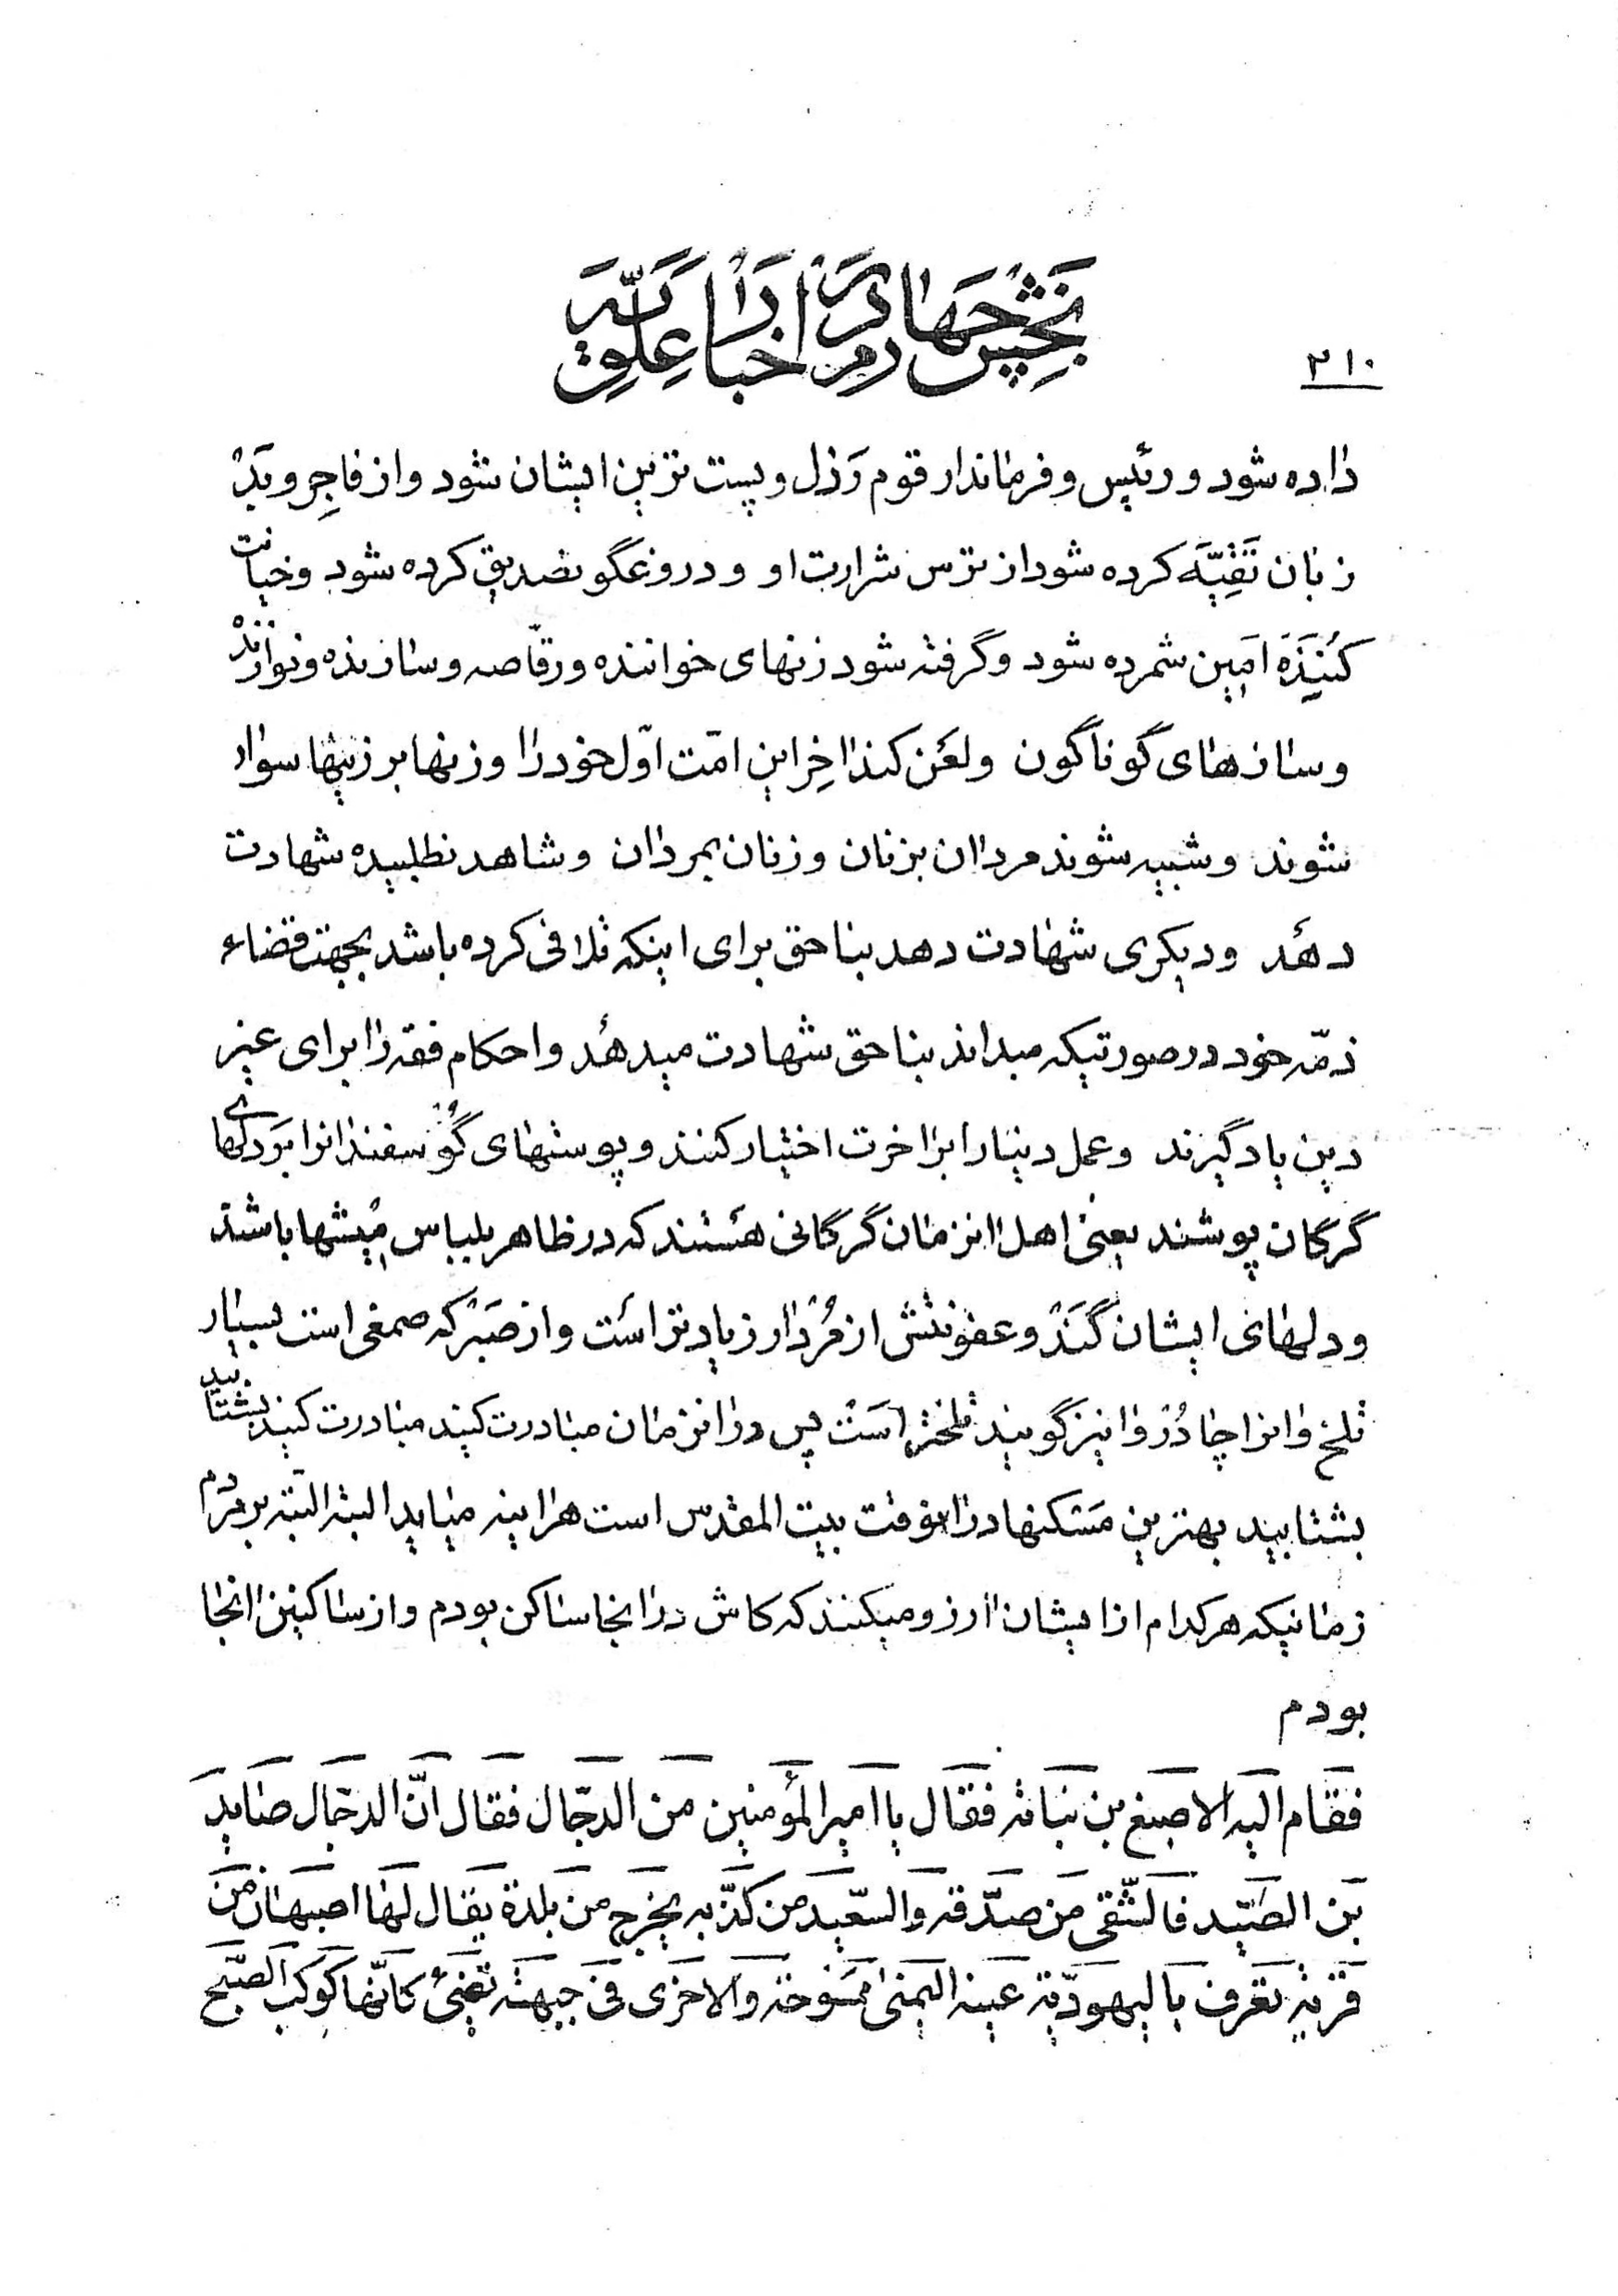 بخش چهارم در اخبار علویّه
۲۱۰
داده شود و رئیس و فرماندار قوم رَذل و پست ترین ایشان شود و از فاجِر و بَدْ
زبان تَقِیَّه کرده شود از ترس شرارت او و دروغگو تصدیق کرده شود و خیانت
کُنَنِدَه امین شمرده شود و گرفته شود زنهای خواننده و رقّاصه و سازنده و نوازَنْدْه
و سازهای گوناگون و لعَن کند اخِر این امّت اوّل خود را و زنها بر زینها سوار
شوند و شبیه شوند مردان بزنان و زنان بمردان و شاهد نطلبیده شهادت
دهَد و دیگری شهادت دهد بناحق برای اینکه تلافی کرده باشد بجهت قضاء
ذمّه خود در صورتیکه میداند بناحق شهادت میدهُد و احکام فقه را برای غیر
دین یاد گیرند و عمل دنیا را بر اخرت اختیار کنند و پوستهای گُوسفندانرا بَر دلهای
گرگان پوشند یعنی اهل انزمان گرگانی هَستند که در ظاهر بلباس مْیشها باشند
و دلهای ایشان گَنَدْ و عفونتش از مُرْدار زیادتر اسَت و از صَبْر که صمغی است بسیار
تلخ و انرا چادُرْوا نیز گویند تلختر اسَتْ پس در انزمان مبادرت کنید مبادرت کنید بشتابید
بشتابید بهترین مَسکنها در انوقت بیت المقدس است هر اینه میاید البته البته بر مردم
زمانیکه هر کدام از ایشان ارزو میکنند که کاش در انجا ساکن بودم و از ساکنین انجا
بودم
فقام الیه الاصبغ بن نباته فقال یا امیر المؤمنین من الدجّال فقال انّ الدجّال صاید
بن الصّید فالشّقی من صدّقه والسّعید من کذّبه یخرج من بلدة یقال لها اصبهان من
قریة تعرف بالیهودّیة عینه الیمنی ممسوحة والاخری فی جبهته تضیئ کانّها کوکب الصّبح